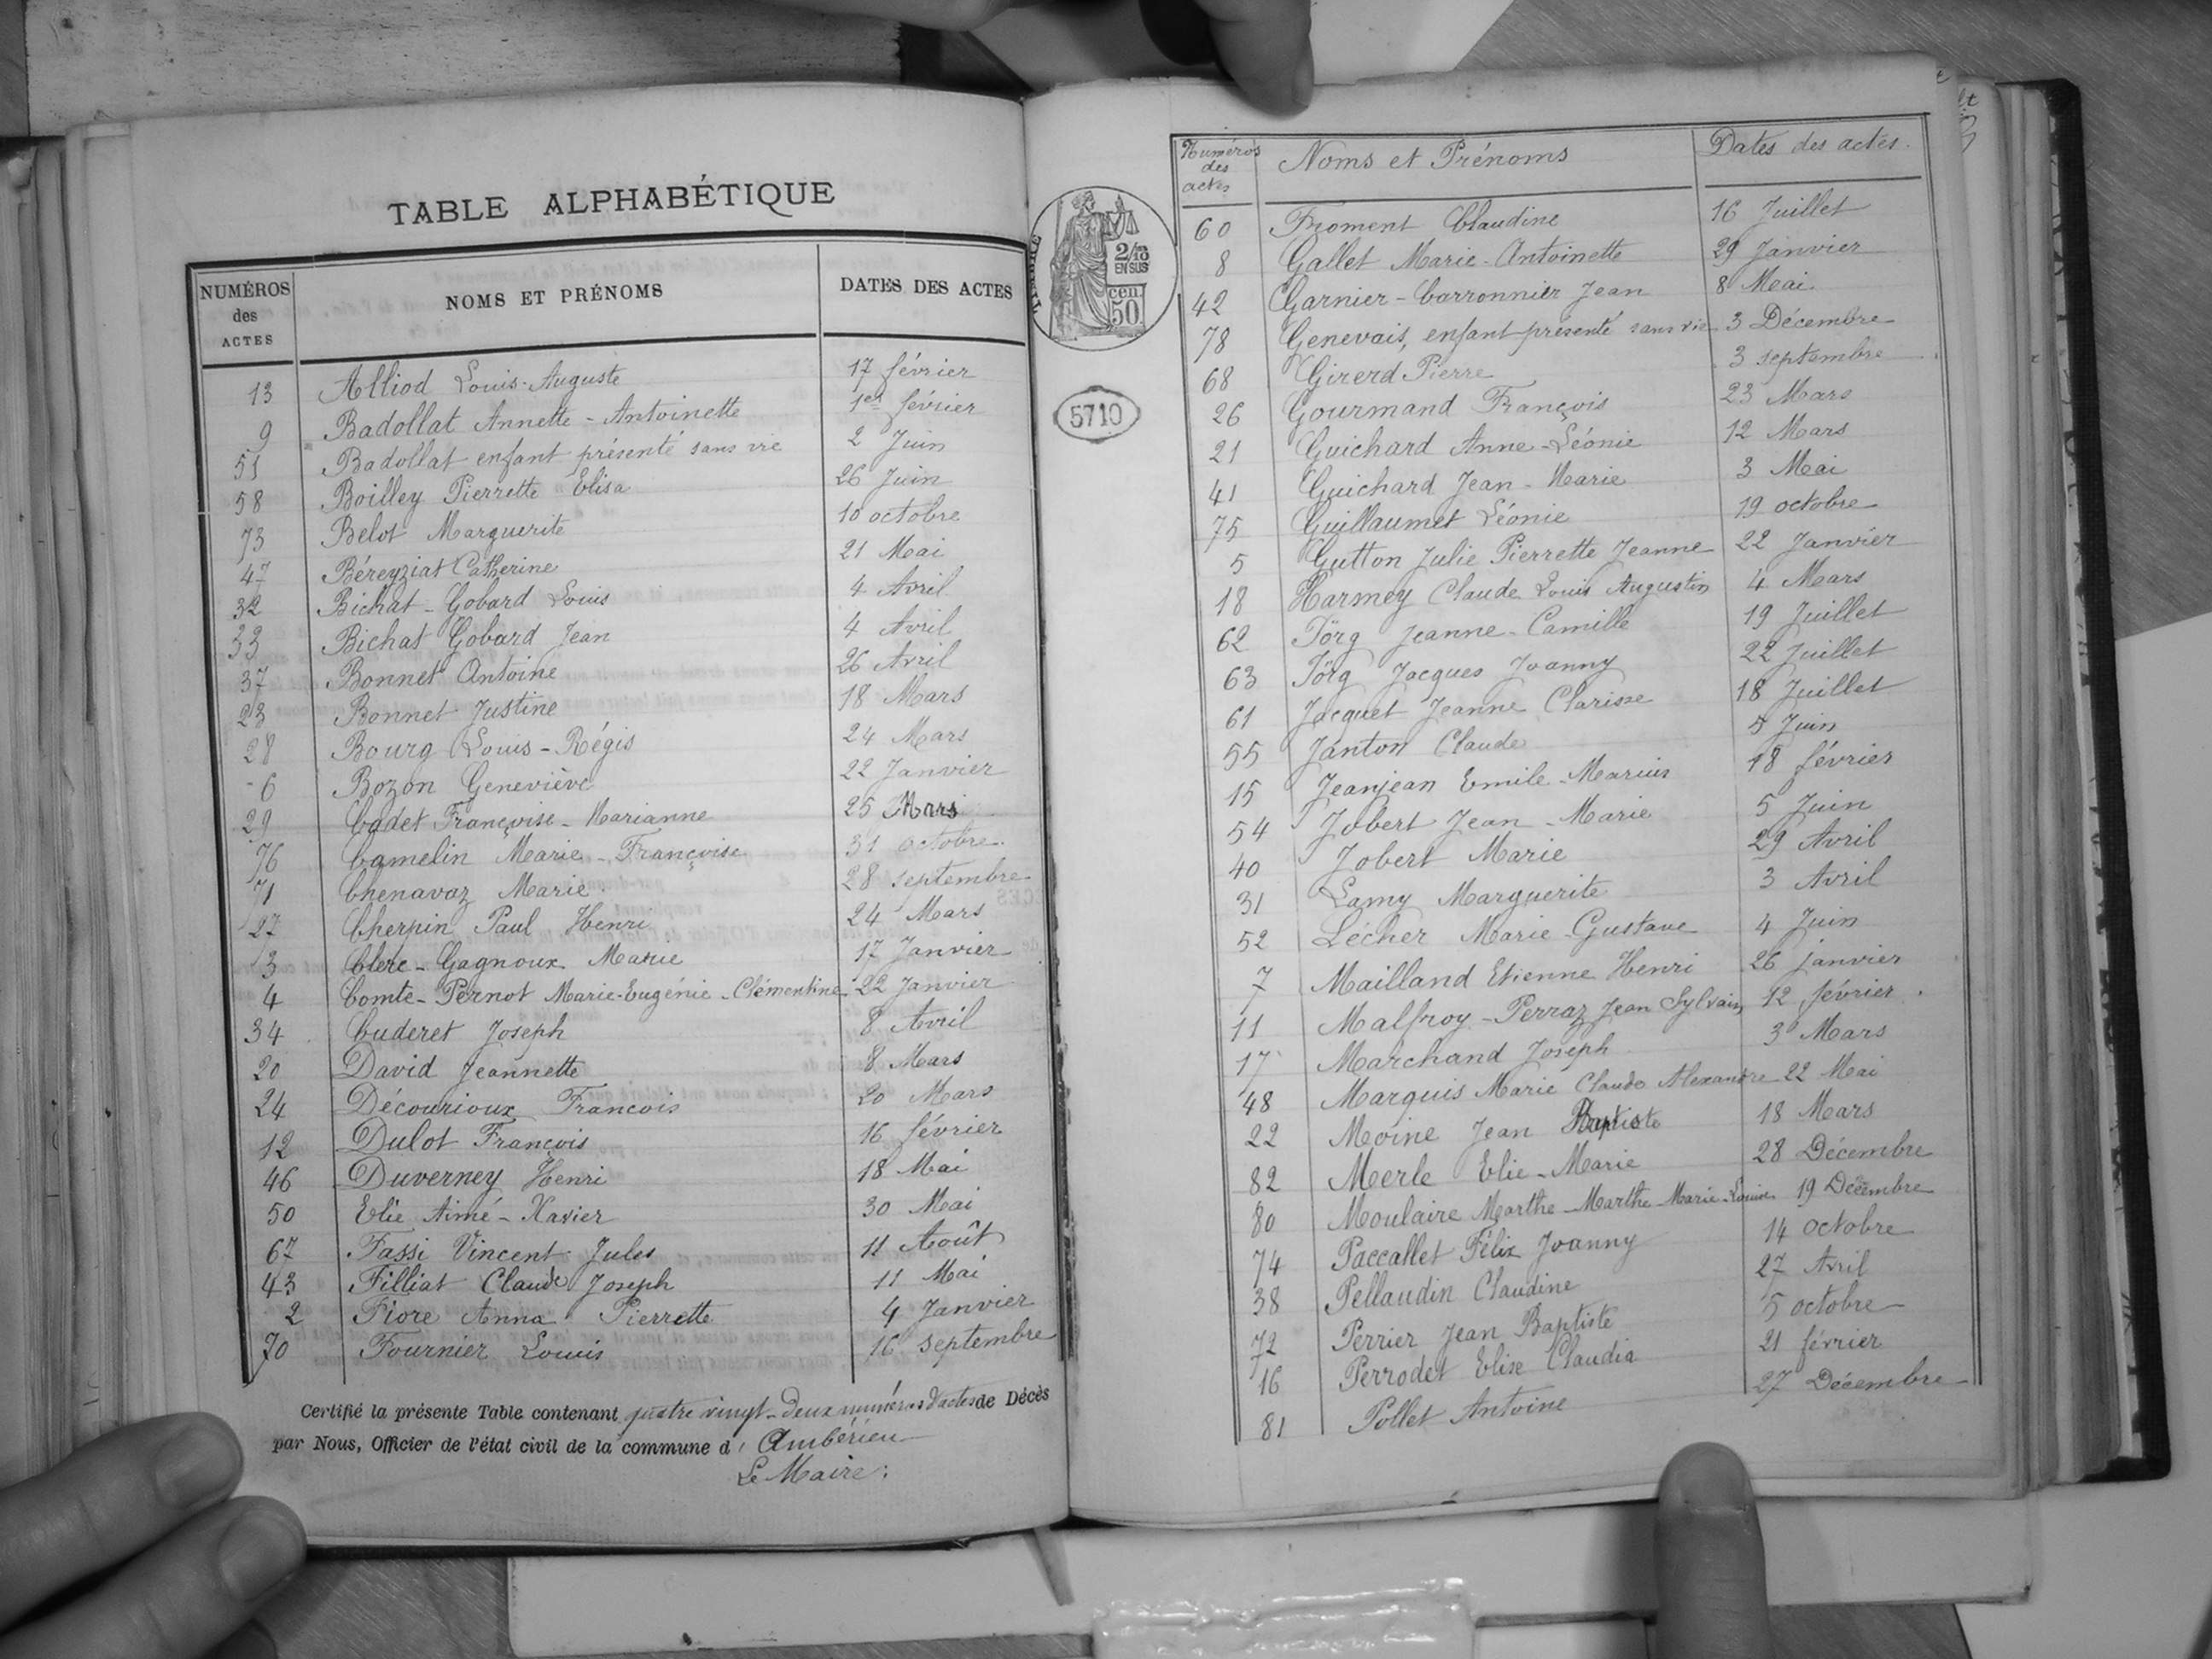 TABLE ALPHABÉTIQUE
NUMÉROS des ACTES NOMS ET PRÉNOMS DATES DES ACTES
13 Alliod Louis-Auguste 17 février
9 Badollat Annette-Antoinette 1er février
51 Badollat enfant présenté sans vie 2 Juin
58 Boilley Pierrette Elisa 26 Juin
73 Belot Marguerite 10 octobre
47 Béreyziat Catherine 21 Mai
32 Bichat-Gobard Louis 4 Avril
33 Bichat Gobard Jean 4 Avril
37 Bonnet Antoine 26 Avril
23 Bonnet Justine 18 Mars
28 Bourg Louis-Régis 24 Mars
6 Bozon Geneviève 22 Janvier
29 Cadet Françoise-Marianne 25 Mars
76 Camelin Marie-Françoise 31 octobre
71 Chenavaz Marie 28 septembre
27 Cherpin Paul Henri 24 Mars
3 Clerc-Gagnoux Marie 17 Janvier
4 Comte-Pernot Marie-Eugénie-Clémentine 22 Janvier
34 Cuderet Joseph 8 Avril
20 David Jeannette 8 Mars
24 Décourioux Francois 20 Mars
12 Dulot François 16 février
46 Duverney Henri 18 Mai
50 Elie Aimé-Xavier 30 Mai
67 Fassi Vincent Jules 11 Août
43 Filliat Claude Joseph 11 Mai
2 Fiore Anna Pierrette 4 Janvier
70 Fournier Louis 16 septembre
Certifié la présente Table contenant quatre vingt-deux numéros d'actes de Décès
par Nous, Officier de l'état civil de la commune d'Ambérieu
Le Maire:
2/10 EN SUS
50 cen.
5710
Numéros des actes Noms et Prénoms Dates des actes.
60 Froment Claudine 16 Juillet
8 Gallet Marie-Antoinette 29 Janvier
42 Garnier-Carronnier Jean 8 Mai
78 Genevais, enfant présenté sans vie 3 Décembre
68 Girerd Pierre 3 septembre
26 Gourmand François 23 Mars
21 Guichard Anne-Léonie 12 Mars
41 Guichard Jean-Marie 3 Mai
75 Guillaumet Léonie 19 octobre
5 Gutton Julie Pierrette Jeanne 22 Janvier
18 Harmey Claude Louis Augustin 4 Mars
62 Jörg Jeanne-Camille 19 Juillet
63 Jörg Jacques Joanny 22 Juillet
61 Jacquet Jeanne Clarisse 18 Juillet
55 Janton Claude 5 Juin
15 Jeanjean Emile-Marius 18 février
54 Jobert Jean-Marie 5 Juin
40 Jobert Marie 29 Avril
31 Lamy Marguerite 3 Avril
52 Lécher Marie-Gustave 4 Juin
7 Mailland Etienne Henri 26 janvier
11 Malfroy-Perraz Jean Sylvain 12 février
17 Marchand Joseph 3 Mars
48 Marquis Marie Claude Alexandre 22 Mai
22 Moine Jean Baptiste 18 Mars
82 Merle Elie-Marie 28 Décembre
80 Moulaire Marthe-Marthe-Marie-Louise 19 Décembre
74 Paccallet Félix Joanny 14 octobre
38 Pellaudin Claudine 27 Avril
72 Perrier Jean Baptiste 5 octobre
16 Perrodet Elise Claudia 21 février
81 Pollet Antoine 27 Décembre